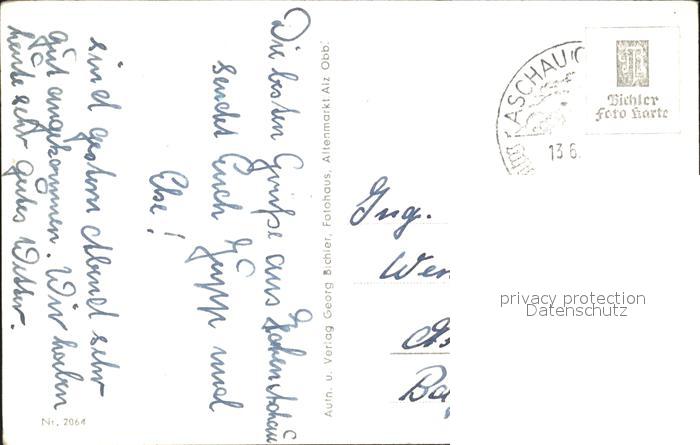 Die besten Grüße aus Hohenaschau
sendet Euch Gruppe und
Else!
sind gestern Abend sehr
gut angekommen. Wir haben
heute sehr gutes Wetter.
Aufn. u. Verlag Georg Bichler, Fotohaus, Altenmarkt Alz Obb.
Nr. 2064
ASCHAU
13 6.
Bichler
Foto Karte
Ing.
privacy protection
Datenschutz